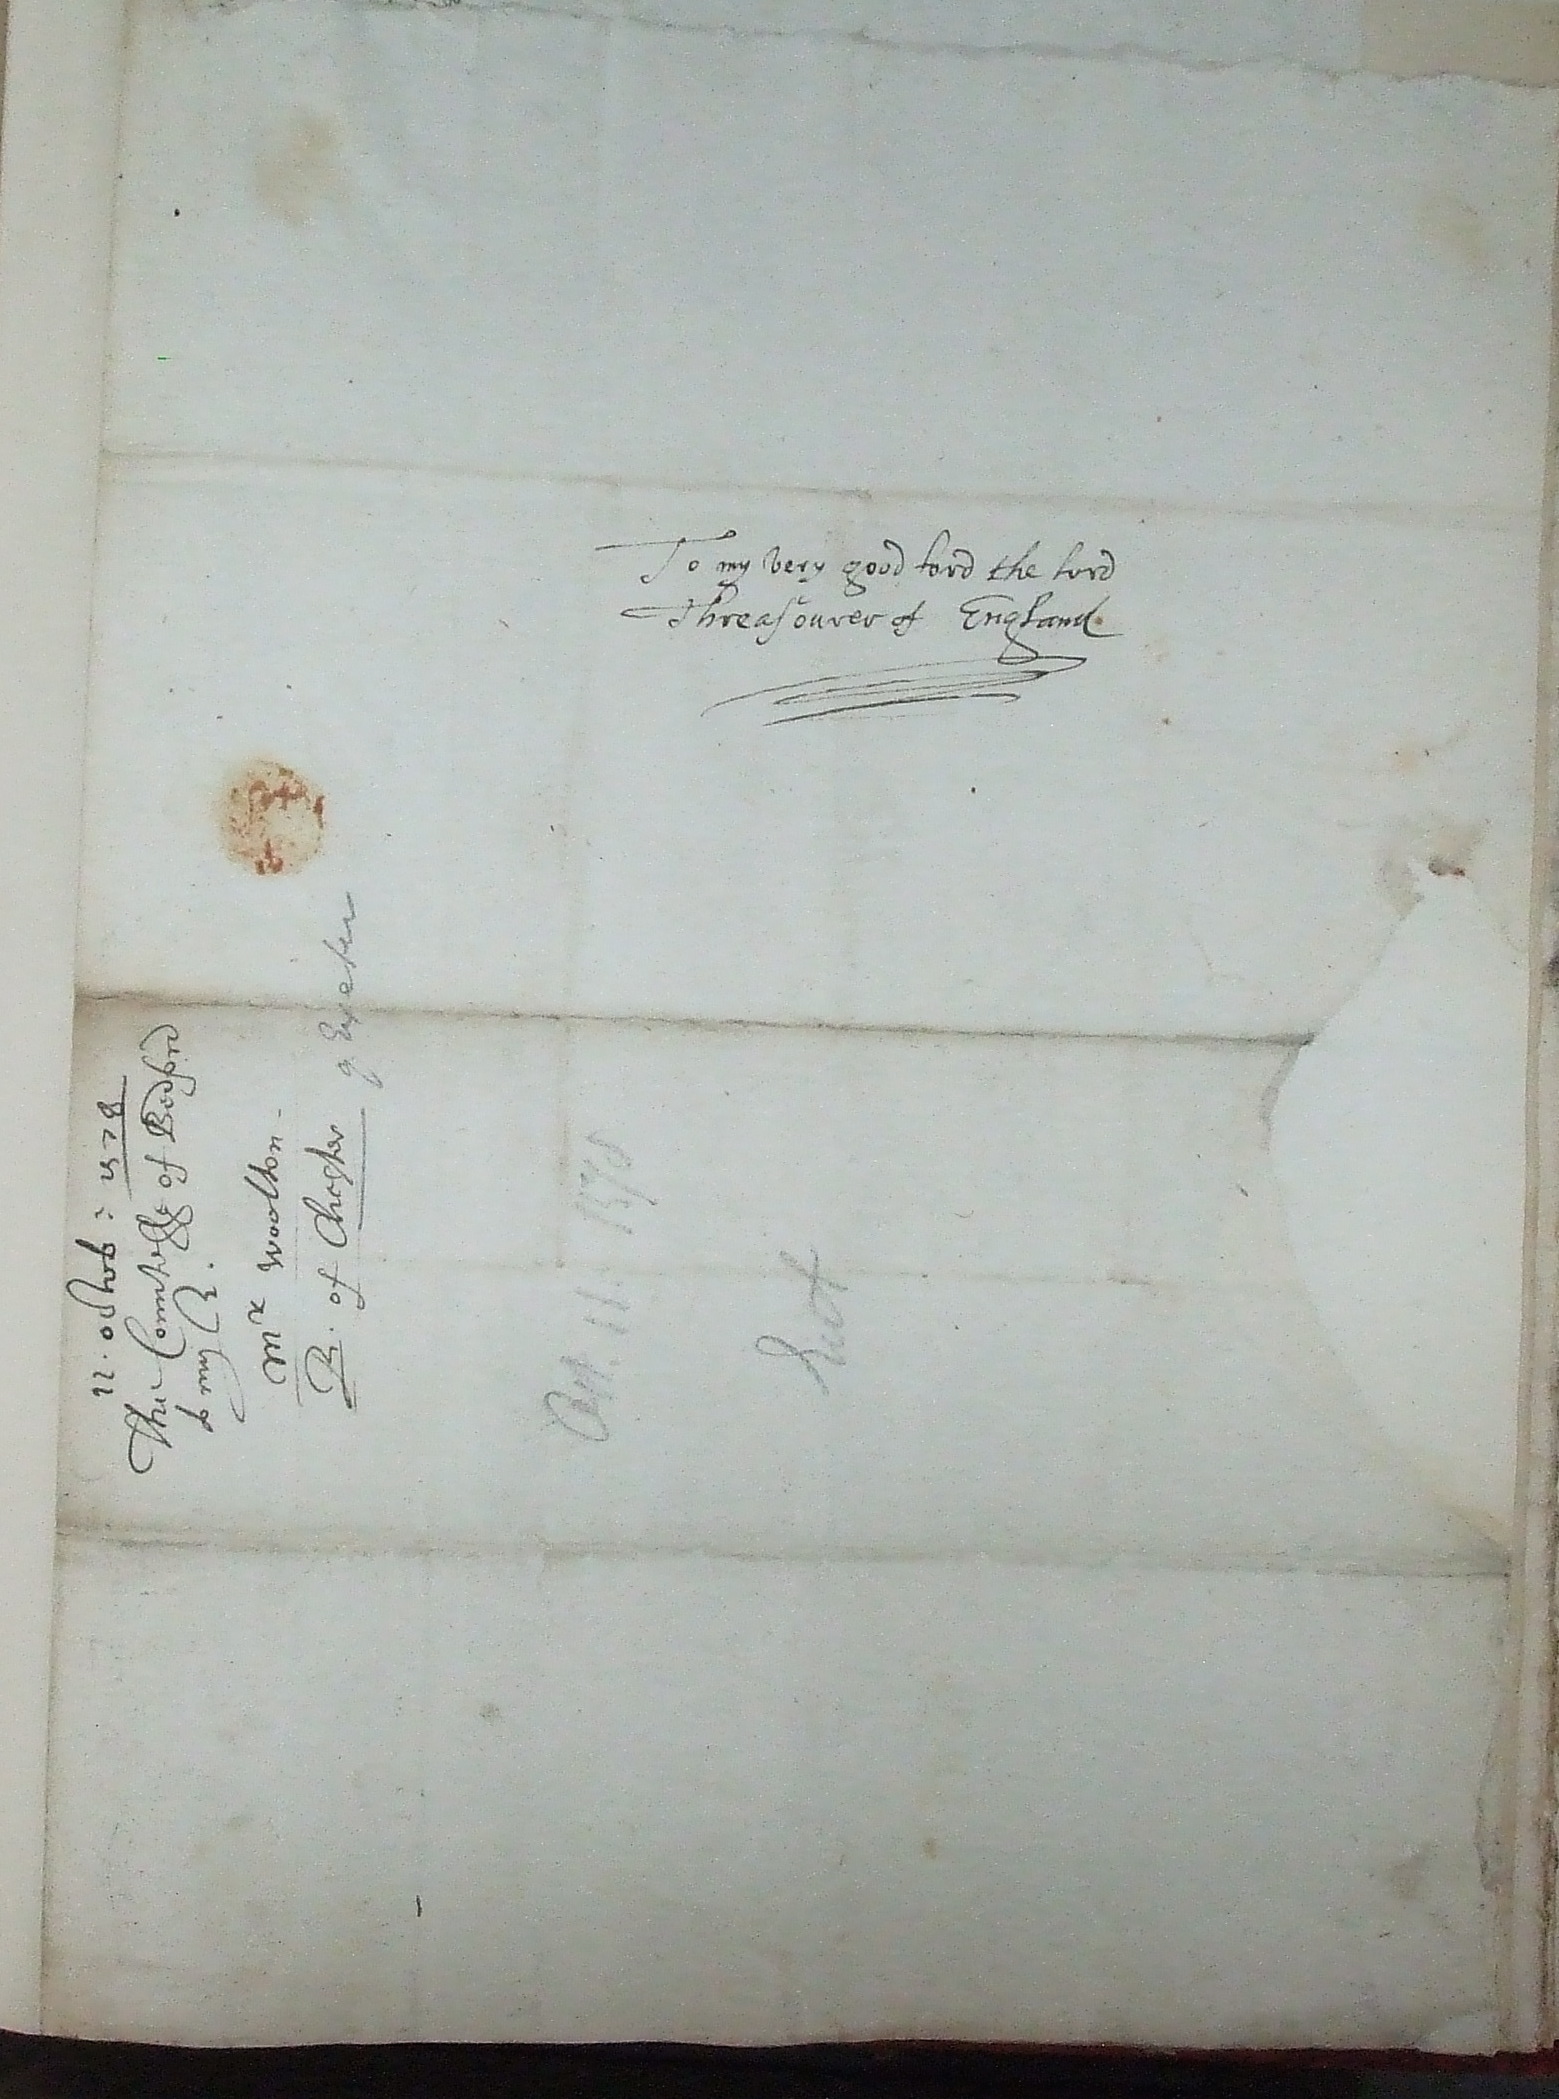 To my very good lord the lord
Threasourer of England
11. octob: 1578
The Countesse of Bedford
to my L.
Mr Woolton.
B. of Chester q Exeter
Oct. 11. 1578